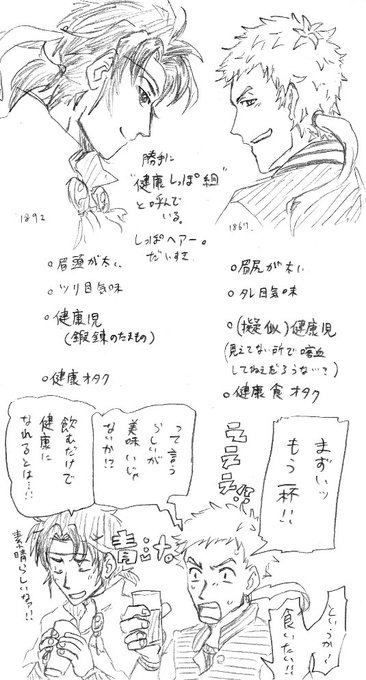 1892
1867
勝手に
"健康しっぽ組"
と呼んで
いる。
しっぽヘアー。
だいすき
○眉頭が太い
○ツリ目気味
○健康児
(鍛錬のたまもの)
○健康オタク
○眉尻が太い
○タレ目気味
○(擬似)健康児
(見えてない所で喀血
してねえだろうな…?)
○健康食オタク
まずいッ
もう一杯!!
えええ!?
って言う
らしいが
美味いじゃ
ないか!?
飲むだけで
健康に
なれるとは…!
素晴らしいなァ!!
青汁。
というか!
食いたい!!